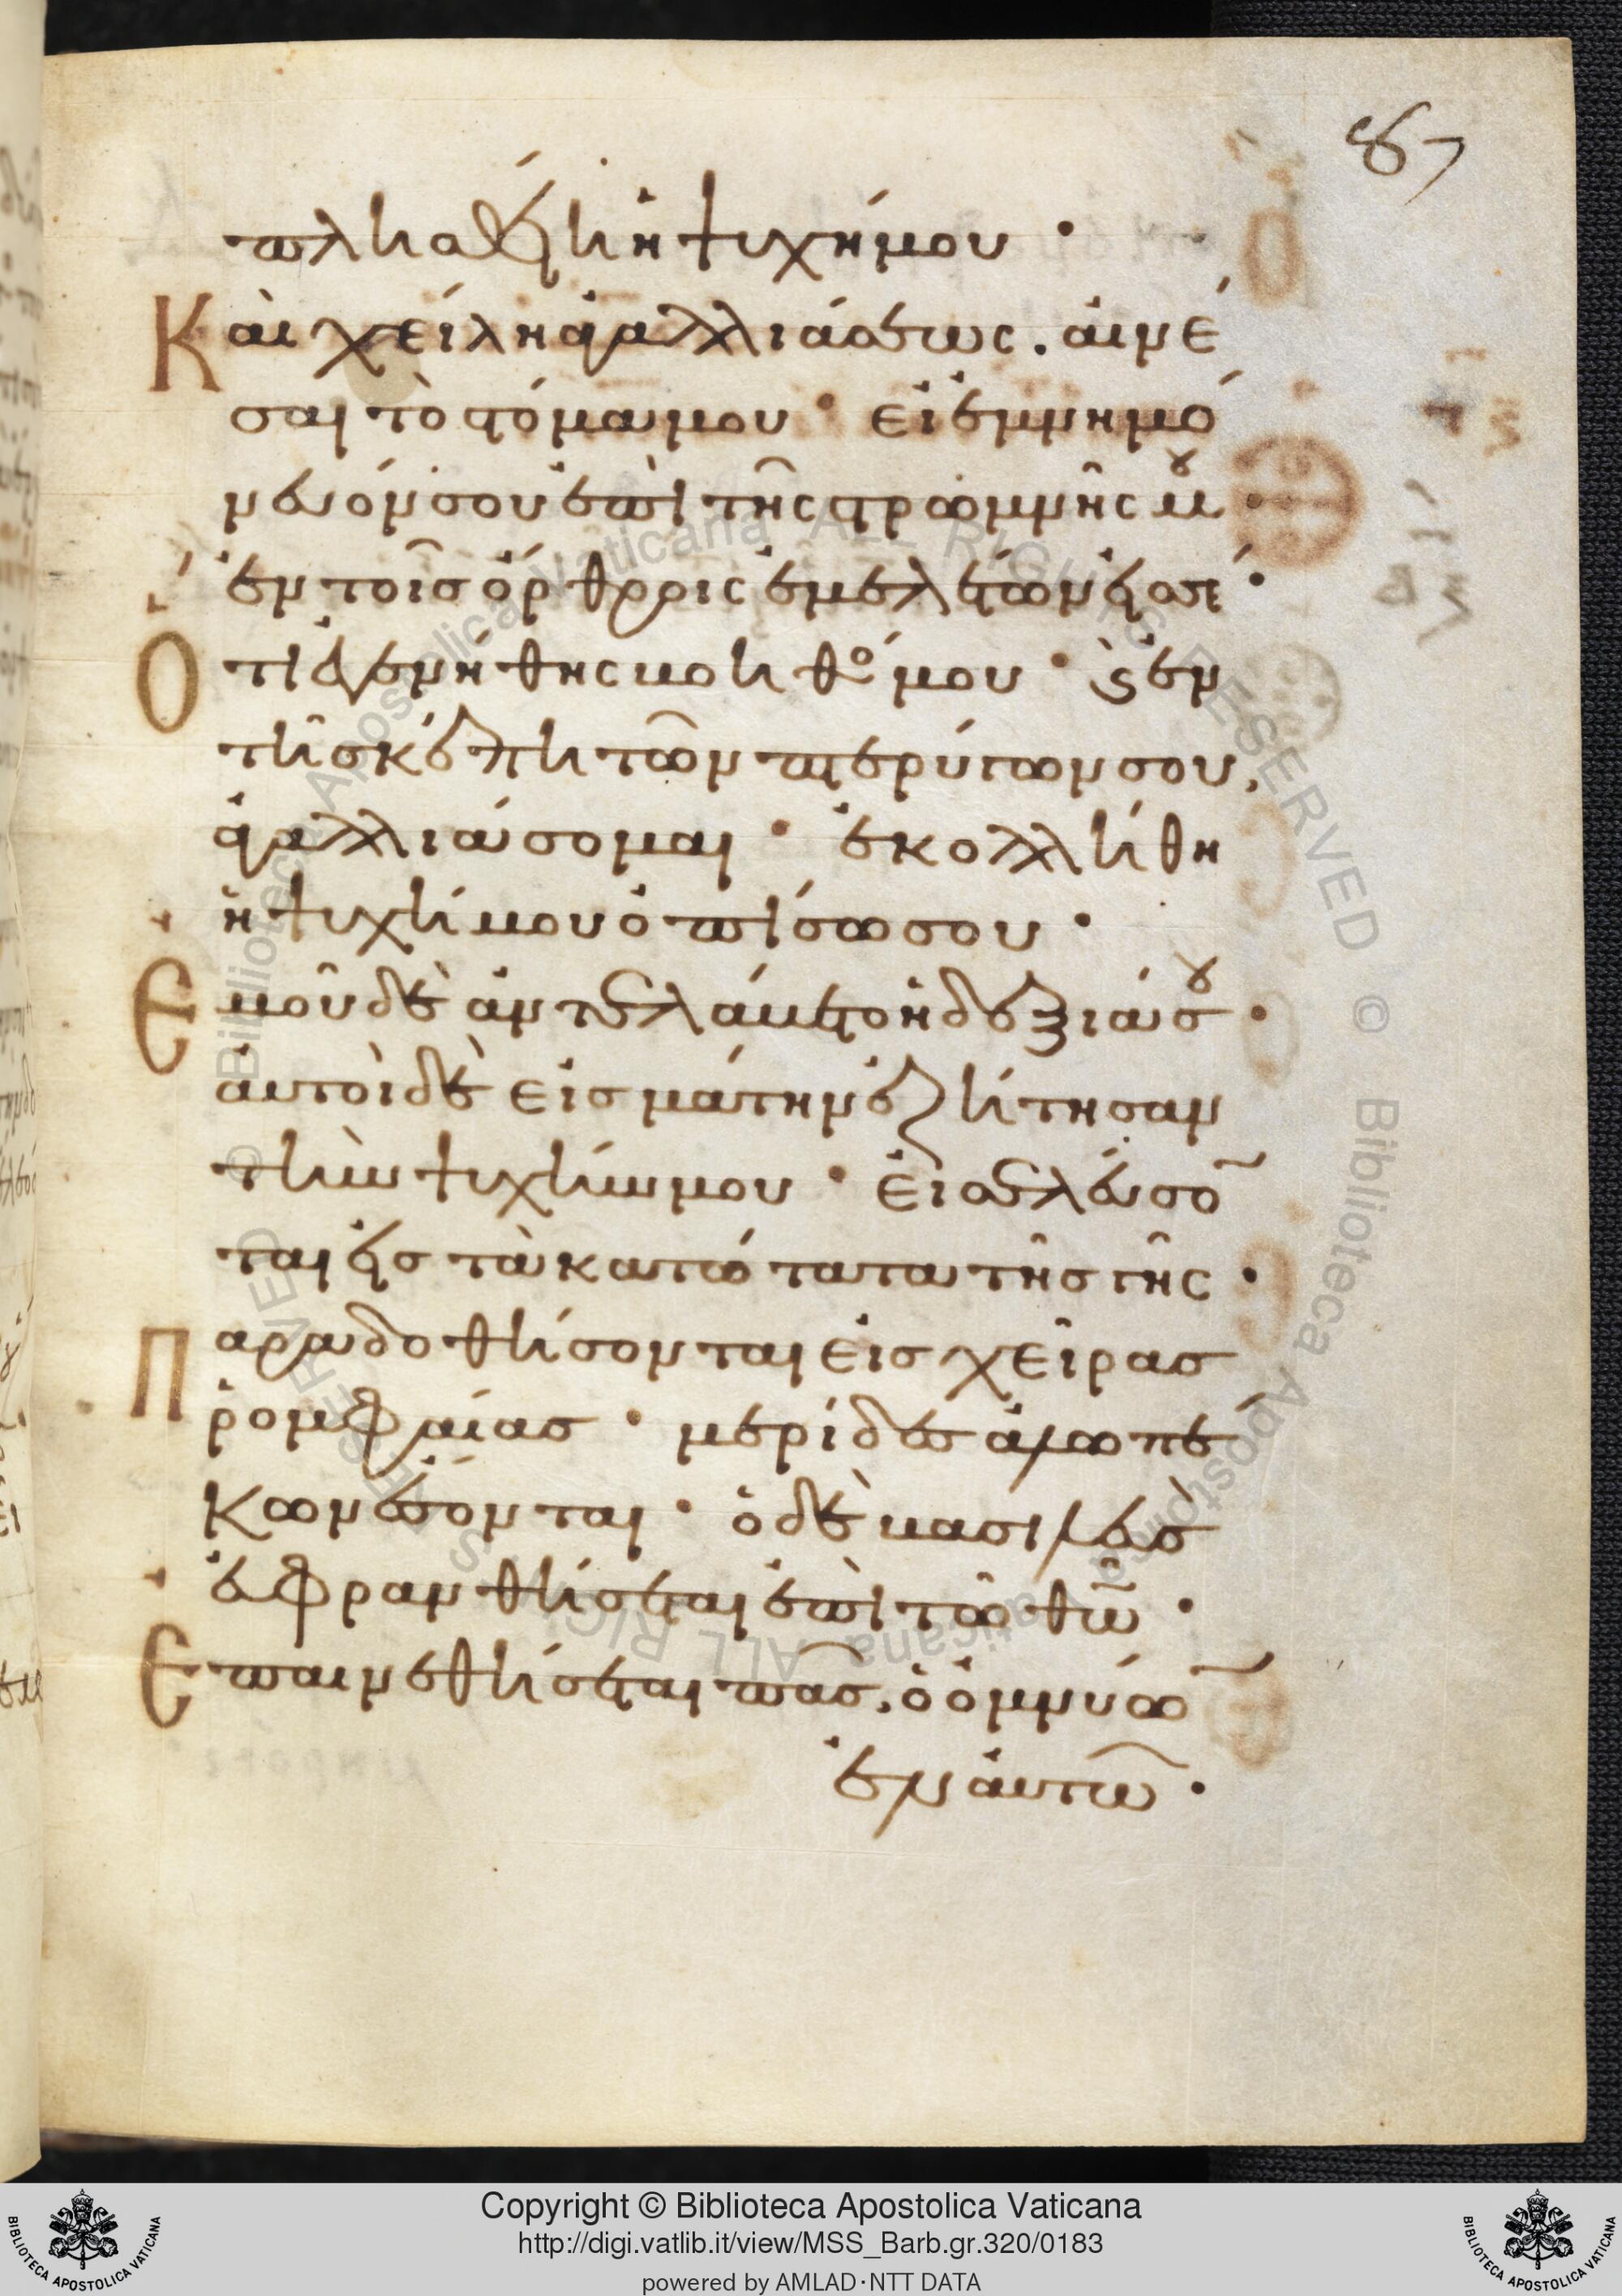 87
πλησθείη ἡ ψυχή μου ·
Καὶ χείλη ἀγαλλιάσεως . αἰνέ
σαι τὸ στόμα μου · εἰ ἐμνημό
νευόν σου ἐπὶ τῆς στρωμνῆς μου ·
ἐν τοῖς ὄρθροις ἐμελέτων εἰς σέ ·
Ὅτι ἐγενήθης βοηθό μου · ϗ ἐν
τῆ σκέπη τῶν πτερύγων σου,
ἀγαλλιάσομαι · ἐκολλήθη
ἡ ψυχή μου ὀπίσω σου ·
Ἐμοῦ δὲ ἀντελάβετο ἡ δεξιά σου ·
αὐτοὶ δὲ εἰς μάτην ἐζήτησαν
τὴν ψυχήν μου · εἰσελεύσο̄
ται εἰς τὰ κατώτατα τῆς γῆς ·
Παραδοθήσονται εἰς χεῖρας
ῥομφαίας · μερίδες ἀλωπέ
κων ἔσονται · ὁ δὲ βασιλεὺς
εὐφρανθήσεται ἐπὶ τῶ θω̄ ·
Ἐπαινεθήσεται πᾶς, ὁ ὀμνύω̄
ἐν αὐτῶ ·
Copyright © Biblioteca Apostolica Vaticana
http://digi.vatlib.it/view/MSS_Barb.gr.320/0183
powered by AMLAD·NTT DATA
BIBLIOTECA APOSTOLICA VATICANA
BIBLIOTECA APOSTOLICA VATICANA